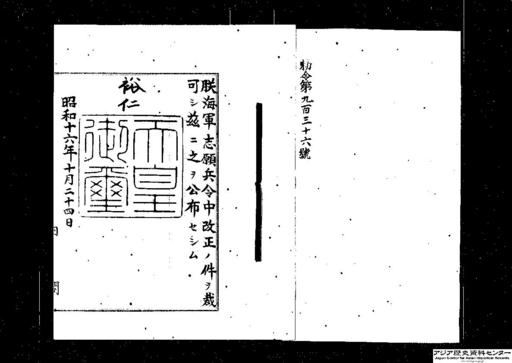 勅令第九百三十六號
朕海軍志願兵令中改正ノ件ヲ裁
可シ茲ニ之ヲ公布セシム
裕仁
天皇御璽
昭和十六年十月二十四日
アジア歴史資料センター
Japan Center for Asian Historical Records